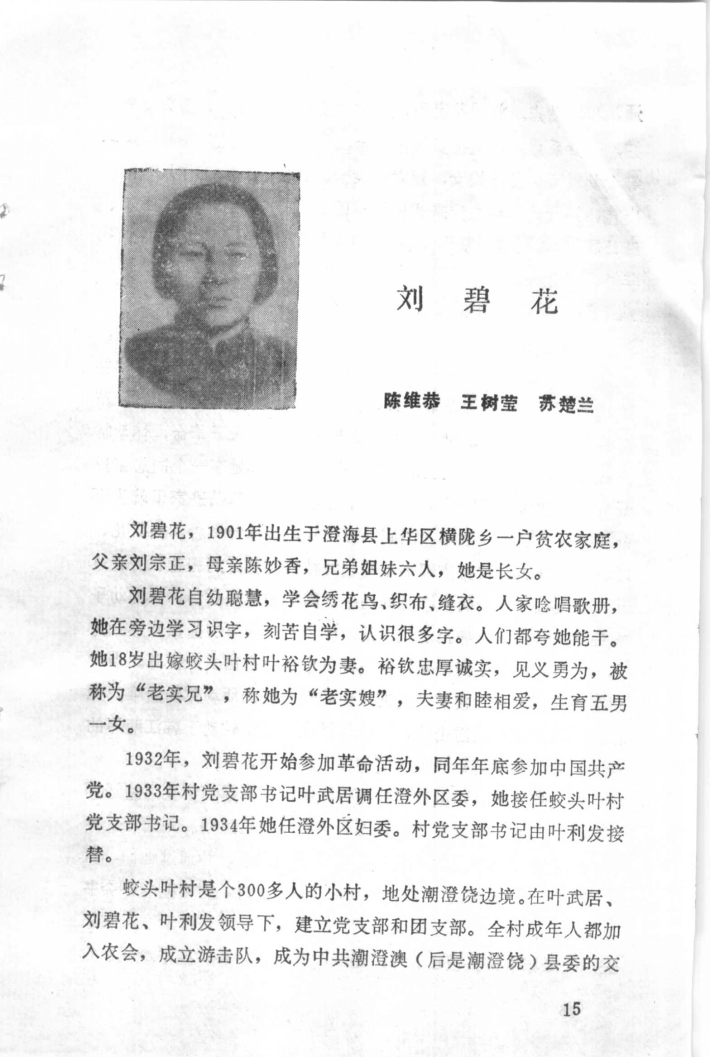 刘碧花
陈维恭 王树莹 苏楚兰
刘碧花，1901年出生于澄海县上华区横陇乡一户贫农家庭，
父亲刘宗正，母亲陈妙香，兄弟姐妹六人，她是长女。
刘碧花自幼聪慧，学会绣花鸟、织布、缝衣。人家唸唱歌册，
她在旁边学习识字，刻苦自学，认识很多字。人们都夸她能干。
她18岁出嫁蛟头叶村叶裕钦为妻。裕钦忠厚诚实，见义勇为，被
称为“老实兄”，称她为“老实嫂”，夫妻和睦相爱，生育五男
一女。
1932年，刘碧花开始参加革命活动，同年年底参加中国共产
党。1933年村党支部书记叶武居调任澄外区委，她接任蛟头叶村
党支部书记。1934年她任澄外区妇委。村党支部书记由叶利发接
替。
蛟头叶村是个300多人的小村，地处潮澄饶边境。在叶武居、
刘碧花、叶利发领导下，建立党支部和团支部。全村成年人都加
入农会，成立游击队，成为中共潮澄澳（后是潮澄饶）县委的交
15